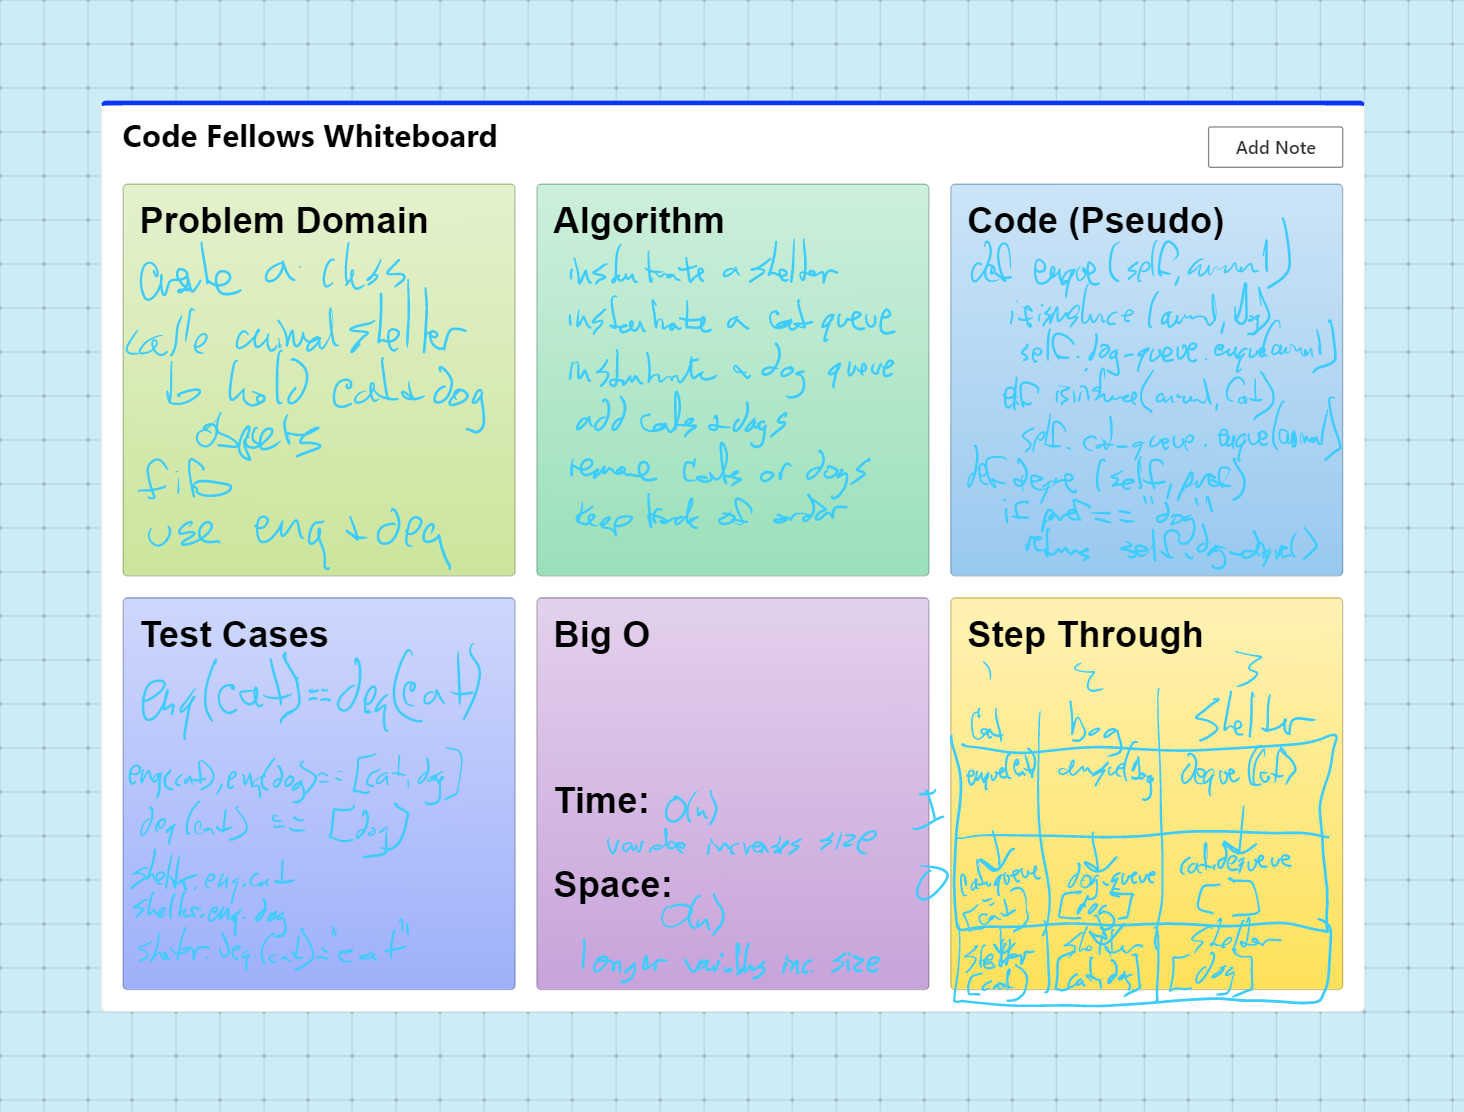 Code Fellows Whiteboard
Add Note
Problem Domain
create a class
calle animal shelter
to hold cat + dog
objects
fifo
use enq + deq
Algorithm
instantiate a shelter
instantiate a cat queue
instantiate a dog queue
add cats + dogs
remove cats or dogs
keep track of order
Code (Pseudo)
def enque (self, animal)
if isinstance (animal, Dog)
self.dog-queue.enque(animal)
elif isinstance(animal, Cat)
self.cat-queue.enque(animal)
def deque (self, pref)
if pref == "dog"
returns self.dog-deque()
Test Cases
enq(cat)==deq(cat)
enq(cat), enq(dog)== [cat, dog]
deq(cat) == [dog]
shelter.enq.cat
shelter.enq.dog
shelter.deq.(cat)="cat"
Big O
Time: O(n)
variable increases size
Space:
O(n)
longer variables inc. size
Step Through
1 2 3
Cat Dog Shelter
I enque(Cat) enque(Dog deque(Cat)
O cat-queue dog-queue cat.dequeue
[cat] [dog] [ ]
shelter shelter shelter
[cat] [cat, dog] [dog]